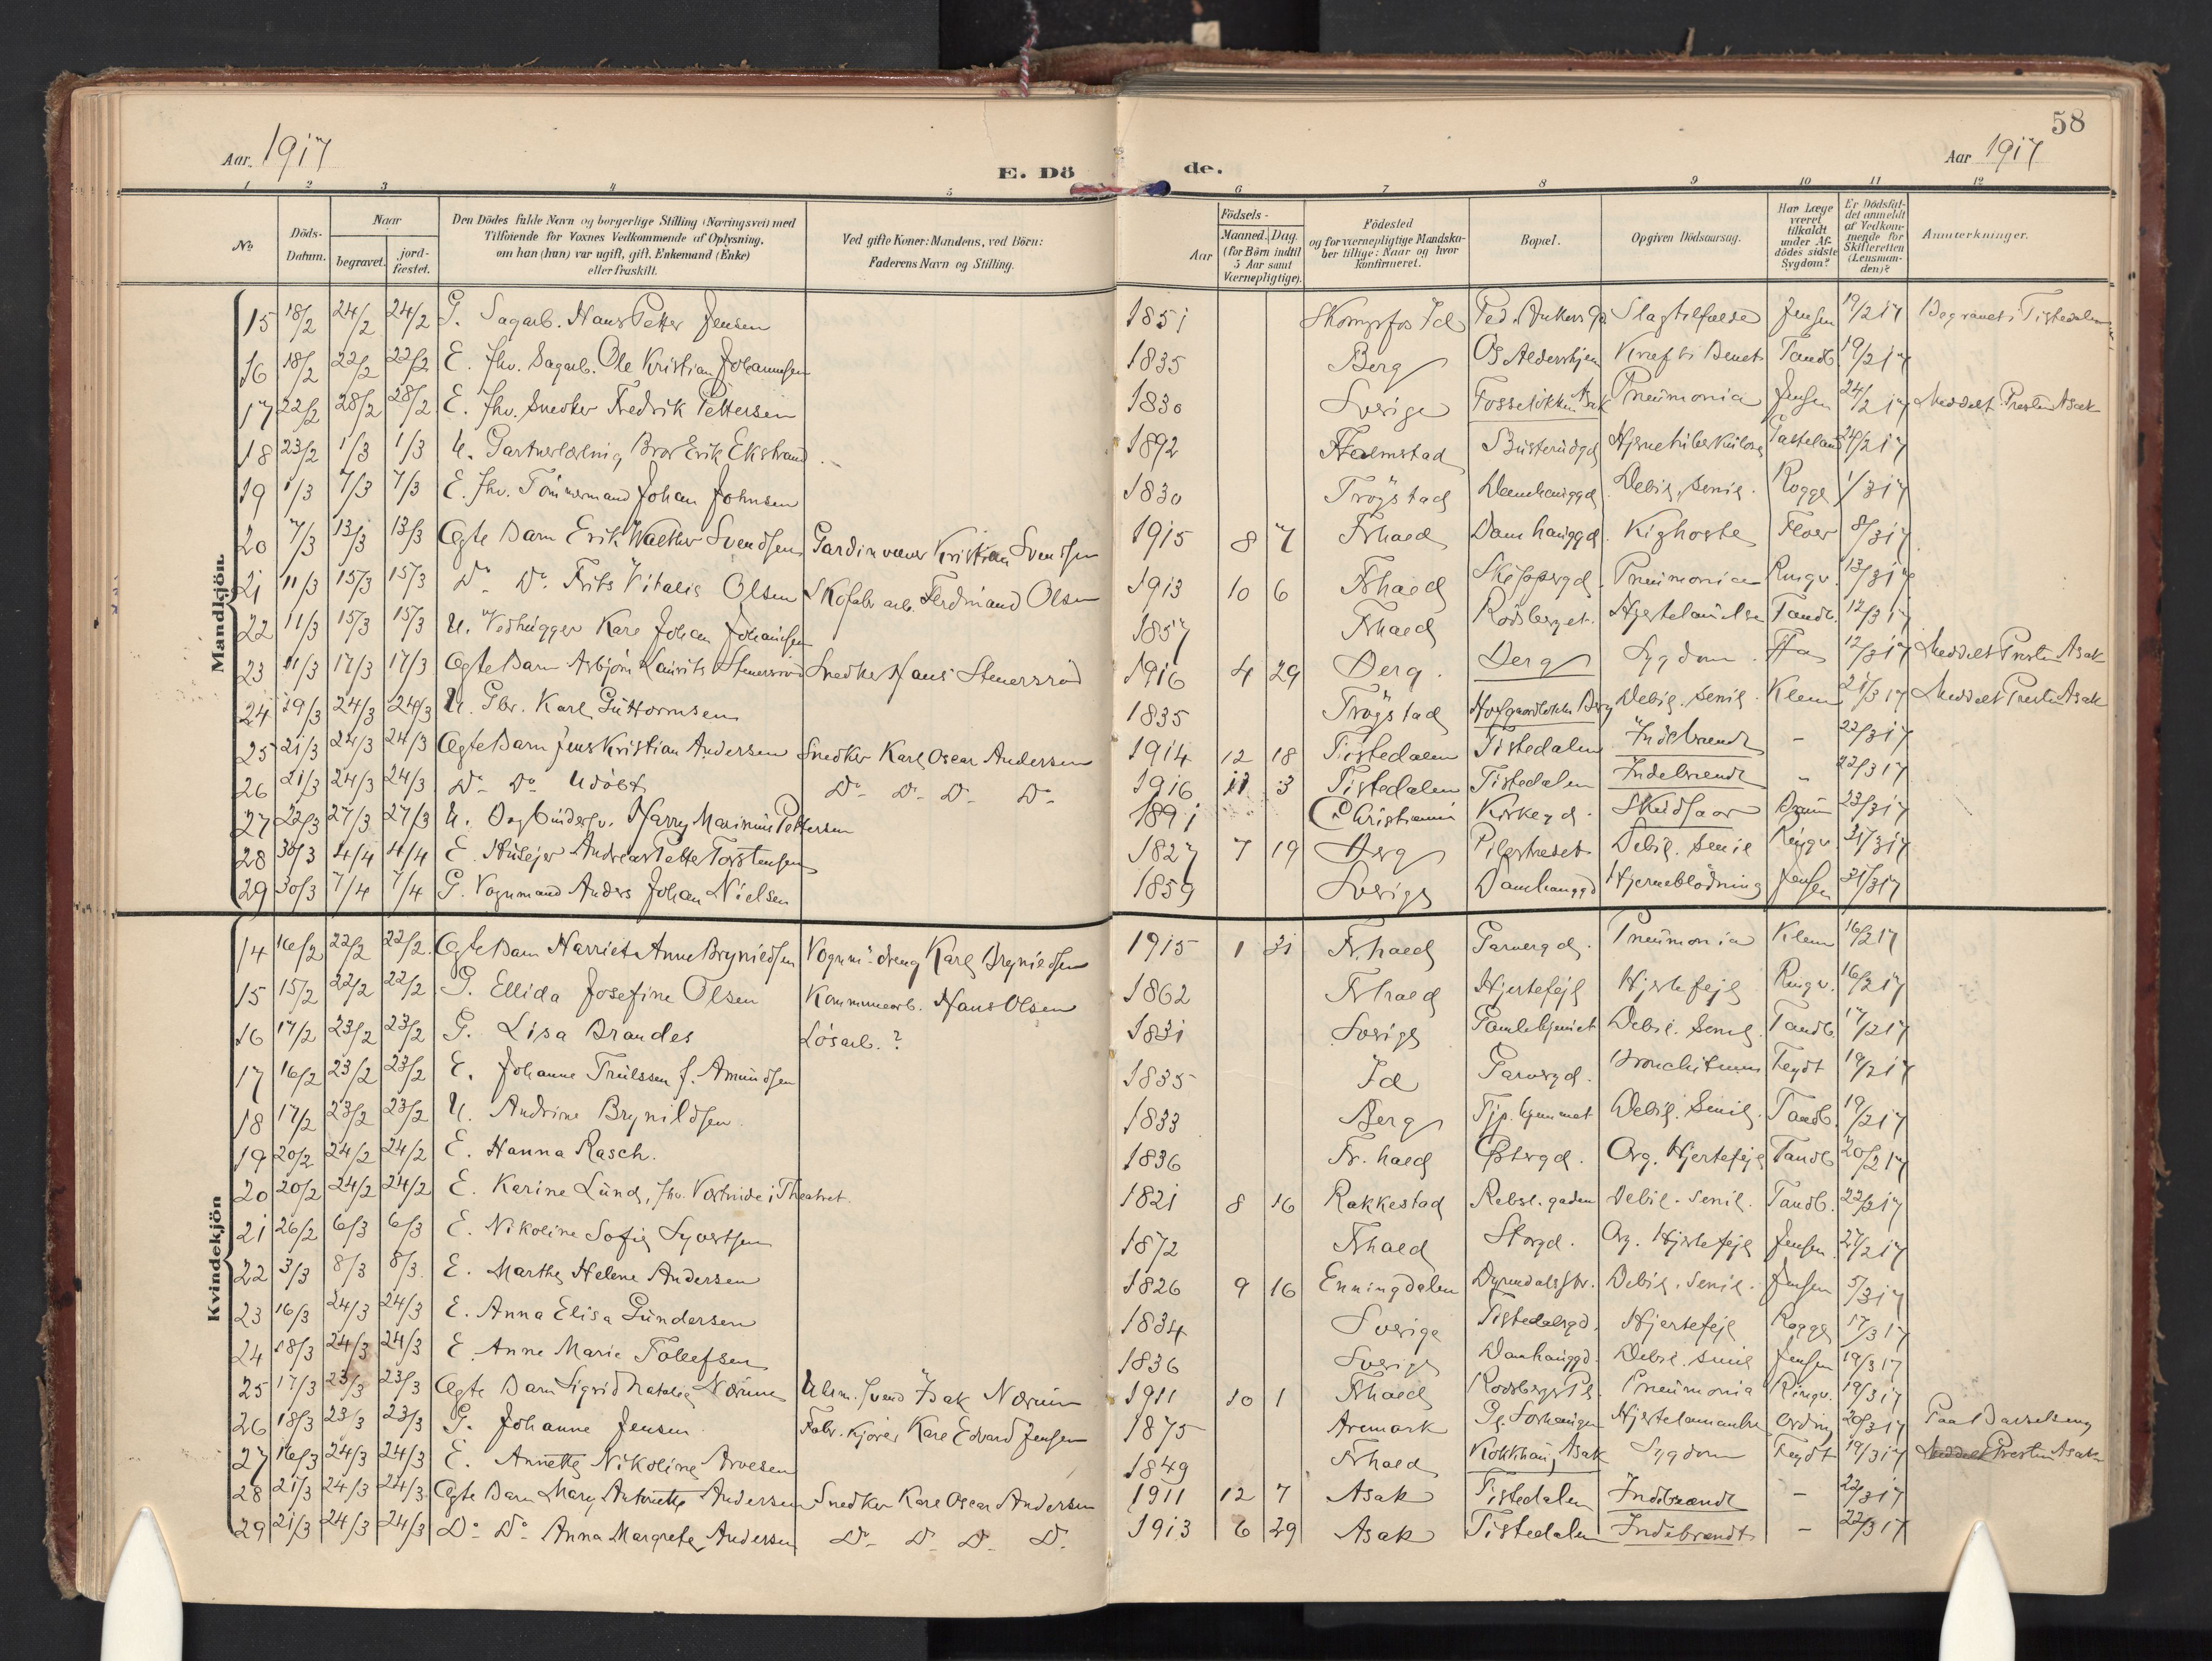 58
Aar. 1917 E. Döde. Aar 1917
1 2 3 4 5 6 7 8 9 10 11 12
No
Döds-Datum.
Naar
begravet. jordfæstet.
Den Dödes fulde Navn og borgerlige Stilling (Næringsvei) med
Tilföiende for Voxnes Vedkommende af Oplysning,
om han (hun) var ugift, gift, Enkemand (Enke)
eller fraskilt.
Ved gifte Koner: Mandens, ved Börn:
Faderens Navn og Stilling.
Födsels-
Aar
Maaned. Dag.
(for Börn indtil
5 Aar samt
Værnepligtige).
Födested
og for værnepligtige Mandskaber tillige: Naar og hvor
konfirmeret.
Bopæl.
Opgiven Dödsaarsag.
Har Læge
været
tilkaldt
under Afdödes sidste
Sygdom?
Er Dödsfaldet anmeldt
af Vedkommende for
Skifteretten
(Lensmanden)?
Anmerkninger.
Mandkjön.
15 18/2 24/2 24/2 G. Sagarb. Hans Petter Jensen 1851 Skonrsfos Id Slagtilfælde Jensen 19/2 17 Begravet i Tistedalen
16 18/2 22/2 22/2 E. fhv. Sagarb. Ole Kristian Johannesen 1835 Berg Os Aldershjem Kræft i Benet Tandb. 19/2 17
17 22/2 28/2 28/2 E. fhv. Snedker Fredrik Pettersen 1830 Sverige Fosseløkken Asak Pneumonia Jensen 24/2 17 Meddelt Presten Asak
18 23/2 1/3 1/3 U. Gartnerlærling Bror Erik Ekstrand 1892 Halmstad Busterudgd Hjernetuberkulose 24/2 17
19 1/3 7/3 7/3 E. fhv. Tömmermand Johan Johnsen 1830 Trögstad Damhauggd Debil. senil. Rogge 1/3 17
20 7/3 13/3 13/3 Ægte Barn Erik Walther Svendsen Gardinvæver Kristian Svendsen 1915 8 7 Frhald Damhauggd. Kighoste Floer 8/3 17
21 11/3 15/3 15/3 Do Do Frits Vitalis Olsen Skofabr arb. Ferdinand Olsen 1913 10 6 Frhald Skippergd. Pneumonia Ringv. 13/3 17
22 11/3 15/3 15/3 U. Vedhugger Karl Johan Johansen 1857 Frhald Rödsberget. Hjertelammelse Tandb. 12/3 17
23 11/3 17/3 17/3 Ægte Barn Asbjörn Laurits Stenersröd Snedker Hans Stenersröd 1916 4 29 Berg. Berg Sygdom. 12/3 17 Meddelt Presten Asak
24 19/3 24/3 24/3 U. Gbr. Karl Guttormsen 1835 Trögstad Debil. senil. Klem 21/3 17 Meddelt Presten Asak
25 21/3 24/3 24/3 Ægte Barn Jens Kristian Andersen Snedker Karl Oscar Andersen 1914 12 18 Tistedalen Tistedalen Indebrændt - 22/3 17
26 21/3 24/3 24/3 Do Do Udöbt Do Do Do Do 1916 11 3 Tistedalen Tistedalen Indebrændt - 22/3 17
27 22/3 27/3 27/3 U. Bogbindersv. Harry Marinius Pettersen 1891 Christiania Kirkegd. Skudsaar 23/3 17
28 30/3 4/4 4/4 E. Huseier Andreas Petter Torstensen 1827 7 19 Berg Pilestredet Debil. senil Ringv. 31/3 17
29 30/3 7/4 7/4 G. Vognmand Anders Johan Nielsen 1859 Sverige Damhauggd Hjerneblödning Jensen 31/3 17
Kvindekjön
14 16/2 22/2 22/2. Ægte Barn Harriet Anne Brynildsen Vognm.-dreng Karl Brynildsen 1915 1 31 Fr.hald Garvergd. Pneumonia Klem 16/2 17
15 15/2 22/2 22/2 G. Ellida Josefine Olsen Kommunearb. Hans Olsen 1862 Frhald Hjertefejl Hjertefejl Ringv. 16/2 17
16 17/2 23/2 23/2 G. Lisa Brandes Lösarb. ? 1831 Sverige Gamlehjemmet Debil. senil. Tandb. 17/2 17
17 16/2 23/2 23/2 E. Johanne Trulssen f. Amundsen 1835 Id Garvergd. Feydt 19/2 17
18 17/2 23/2 23/2 U. Andrine Brynildsen 1833 Berg Tjp. hjemmet Debil. Senil. Tandb. 19/2 17
19 20/2 24/2 24/2 E. Hanna Rasch. 1836 Fr.hald Östergd. Org. Hjertefejl Tandb 20/2 17
20 20/2 24/2 24/2 E. Karine Lund, fhv. i Theatret. 1821 8 16 Rakkestad Rebsl. gaden Debil. senil. Tandb. 22/2 17
21 26/2 6/3 6/3 E. Nikoline Sofie Syvertsen 1872 Frhald Storgd. Org. Hjertefejl Jensen. 27/2 17
22 3/3 8/3 8/3. E. Marthe Helene Andersen 1826 9 16 Enningdalen Dyrendalsgbr. Debil. senil. Jensen 5/3 17
23 16/3 24/3 24/3 E. Anna Elisa Gundersen 1834 Sverige Tistedalsgd. Hjertefejl Rogge 17/3 17
24 18/3 24/3 24/3 E. Anne Marie Tollefsen 1836 Sverige Damhauggd. Debil. senil Jensen 19/3 17
25 17/3 23/3 23/3 Ægte Barn Sigrid Natalie Nærum Urm. svend Isak Nærum 1911 10 1 Frhald Rödsberg Pl. Pneumonia Ringv. 19/3 17
26 18/3 23/3 23/3 G. Johanne Jensen. Fabr. kjörer Karl Edvard Jensen 1875 Aremark Hjertelammelse Ording 20/3 17 Paa Barselseng
27 16/3 24/3 24/3 E. Annette Nikoline Arvesen 1849 Frhald Asak Sygdom Feydt 19/3 17 Meddelt Presten Asak
28 21/3 24/3 24/3 Ægte Barn Mary Antonette Andersen Snedker Karl Oscar Andersen 1911 12 7 Asak Tistedalen Indebrændt - 22/3 17
29 21/3 24/3 24/3 Do Do Anna Margrete Andersen Do D. D. D. 1913 6 29 Asak Tistedalen Indebrændt - 22/3 17